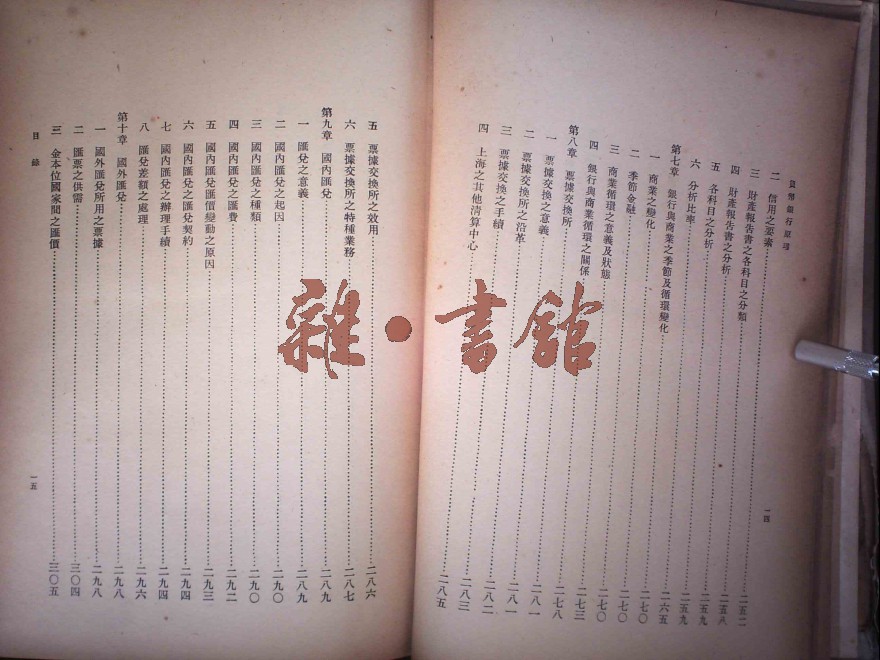 貨幣銀行原理
二 信用之要素……二五二
三 財產報告書之各科目之分類……二五八
四 財產報告書之分析……二五九
五 各科目之分析……二五九
六 分析比率……二六五
第七章 銀行與商業之季節及循環變化……二七〇
一 商業之變化……二七〇
二 季節金融……二七〇
三 商業循環之意義及狀態……二七三
四 銀行與商業循環之關係……二七八
第八章 票據交換所……二八一
一 票據交換之意義……二八一
二 票據交換所之沿革……二八二
三 票據交換之手續……二八三
四 上海之其他清算中心……二八五
一四
五 票據交換所之效用……二八六
六 票據交換所之特種業務……二八七
第九章 國內匯兌……二八九
一 匯兌之意義……二八九
二 國內匯兌之起因……二九〇
三 國內匯兌之種類……二九〇
四 國內匯兌之匯費……二九二
五 國內匯兌匯價變動之原因……二九三
六 國內匯兌之匯兌契約……二九四
七 國內匯兌之辦理手續……二九四
八 匯兌差額之處理……二九六
第十章 國外匯兌……二九八
一 國外匯兌所用之票據……二九八
二 匯票之供需……三〇四
三 金本位國家間之匯價……三〇五
目錄
一五
雜·書館